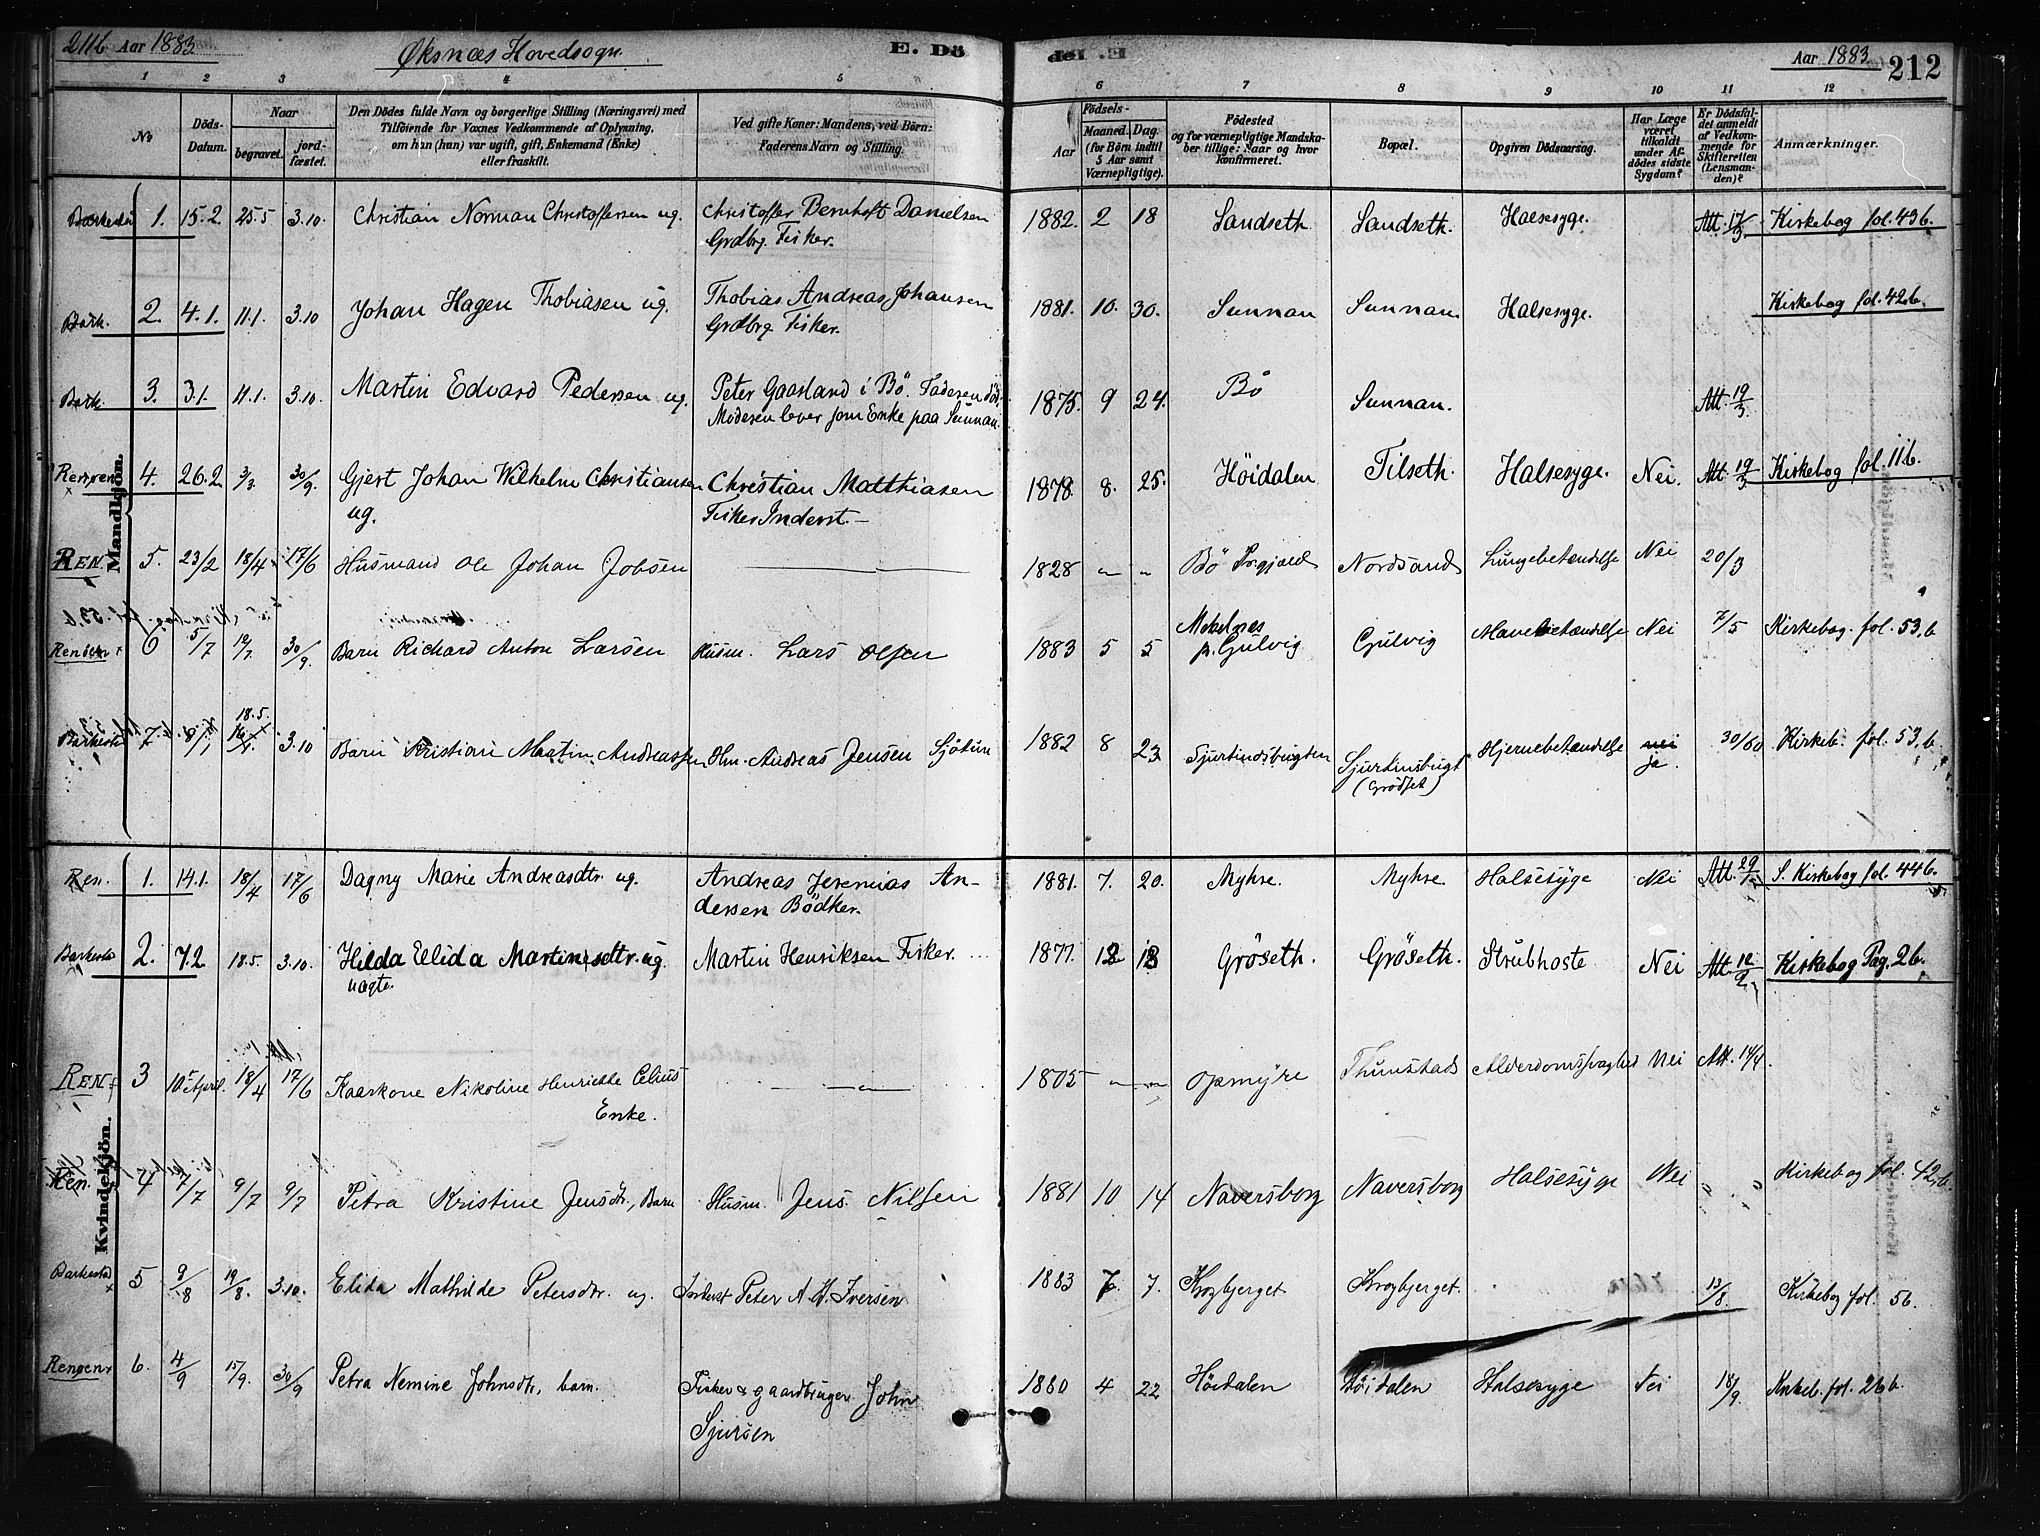 211b. Aar 1883. Øksnæs Hovedsogn. E. Dö
del .E Aar 1883. 212
1 2 3 4 5 6 7 8 9 10 11 12
No
Döds-Datum.
Naar
begravet.
jord-fæstet.
Den Dödes fulde Navn og borgerlige Stilling (Næringsvei) med
Tilföiende for Voxnes Vedkommende af Oplysning,
om hun (han) var ugift, gift, Enkemand (Enke)
eller fraskilt.
Ved gifte Koner: Mandens, ved Börn:
Faderens Navn og Stilling.
Födsels-
Aar
Maaned. Dag.
(for Börn indtil
5 Aar samt
Værnepligtige).
Födested
og for værnepligtige Mandska-
ber tillige: Naar og hvor
konfirmeret.
Bopæl.
Opgiven Dödsaarsag.
Har Læge
været
tilkaldt
under Af-
dödes sidste
Sygdom?
Er Dödsfal-
det anmeldt
af Vedkom-
mende for
Skifteretten
(Lensman-
den)?
Anmærkninger.
Mandkjön.
1. 15.2 25.5 3.10. Christian Norman Christoffersen ug. Christoffer Bernhoft Danielsen 1882. 2 18 Sandseth. Sandseth. Halsesyge. Att. 17/3 Kirkebog fol. 43 b.
Grdbrg. Fisker.
Bark. 2. 4.1. 11.1. 3.10 Johan Hagen Thobiasen ug. Thobias Andreas Johansen 1881. 10. 30. Sunnan Sunnan. Halsesyge. Kirkebog fol. 42 b.
Grdbrg. Fisker.
Bark. 3. 3.1. 11.1. 3.10. Martin Edvard Pedersen ug. Peter Gaasland i Bö. Faderen död. 1875. 9 24. Bö Sunnan. Att. 19/3.
Moderen lever som Enke paa Sunnan.
4. 26.2 3/3. 30/9. Gjert Johan Wilhelm Christiansen Christian Matthiasen 1878. 8. 25. Höidalen Tilseth. Halsesyge. Nei. Att. 19/3 Kirkebog fol. 11 b.
ug. Fisker Inderst.
REN. 5. 23/2 18/4 17/6 Husmand Ole Johan Jobsen 1828 Bö Nordsand Lungebetændelse Nei 20/3
6 5/7 19/7. 30/9. Barn Richard Anton Larsen Husm. Lars Olsen 1883 5 5 p. Gulvig Gulvig Mavebetændelse Nei 7/5 Kirkebog. fol. 53. b
18.5.
Barkestad 7. 8/1 3.10 Barn Kristian Martin Andreassen Hm. Andreas Jensen 1882 8 23 Sjurtindsbugten Sjurtinsbugt Hjernebetændelse nei 30/60 Kirkeb. fol. 53. b
(Grödset) ja.
Kvindekjön.
Ren. 1. 14.1. 18/4 17/6 Dagny Marie Andreasdtr. ug. Andreas Jeremias An- 1881. 7. 20. Myhre. Myhre. Halsesyge Nei Att. 29/1 S. Kirkebog fol. 44 b.
dersen Bödker.
Barkestad 2. 7.2 18.5. 3.10. Hilda Elida Martinesdtr. ug. Martin Henriksen Fisker. 1877. 12 18 Gröseth. Gröseth. Strubhoste Nei Att. 12/2 Kirkebog Pag. 2 b.
uægte.
REN 3 10 April 18/4 17/6 Kaarkone Nikoline Henriette Celius 1805 Opmyre Thunstad Alderdomssvaghed Nei Att. 14/4.
Enke.
Ren. 4 7/7 9/7 9/7 Petra Kristine Jensdtr., Barn Husm. Jens Nilsen 1881 10 14 Naversborg Naversborg Halsesyge Nei Kirkebog fol. 42 b.
Barkestad 5 9/8 19/8. 3.10. Elida Mathilde Petersdtr. ug. Inderst Peter A. M. Iversen 1883 7. 7. Krogbjerget Krogbjerget. 13/8. Kirkebog fol. 56.
Rengen 6. 4/9 15/9. 30/9 Petra Nemine Johnsdtr, barn. Fisker & gaardbruger John 1880 4 22 Höidalen Höidalen Halsesyge Nei 18/9. Kirkeb. fol. 26 b.
Sjursen